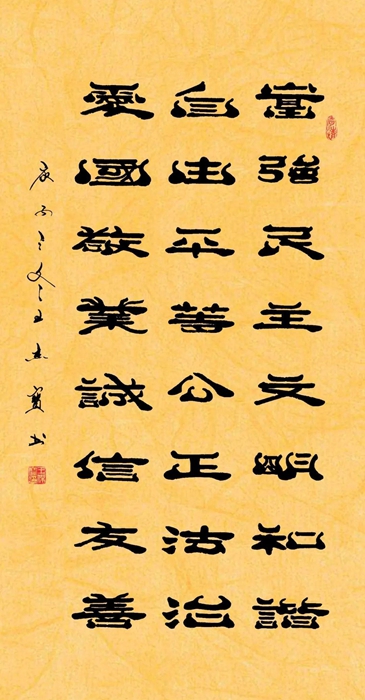 富強民主文明和諧
自由平等公正法治
愛國敬業誠信友善
庚子之冬王寶书